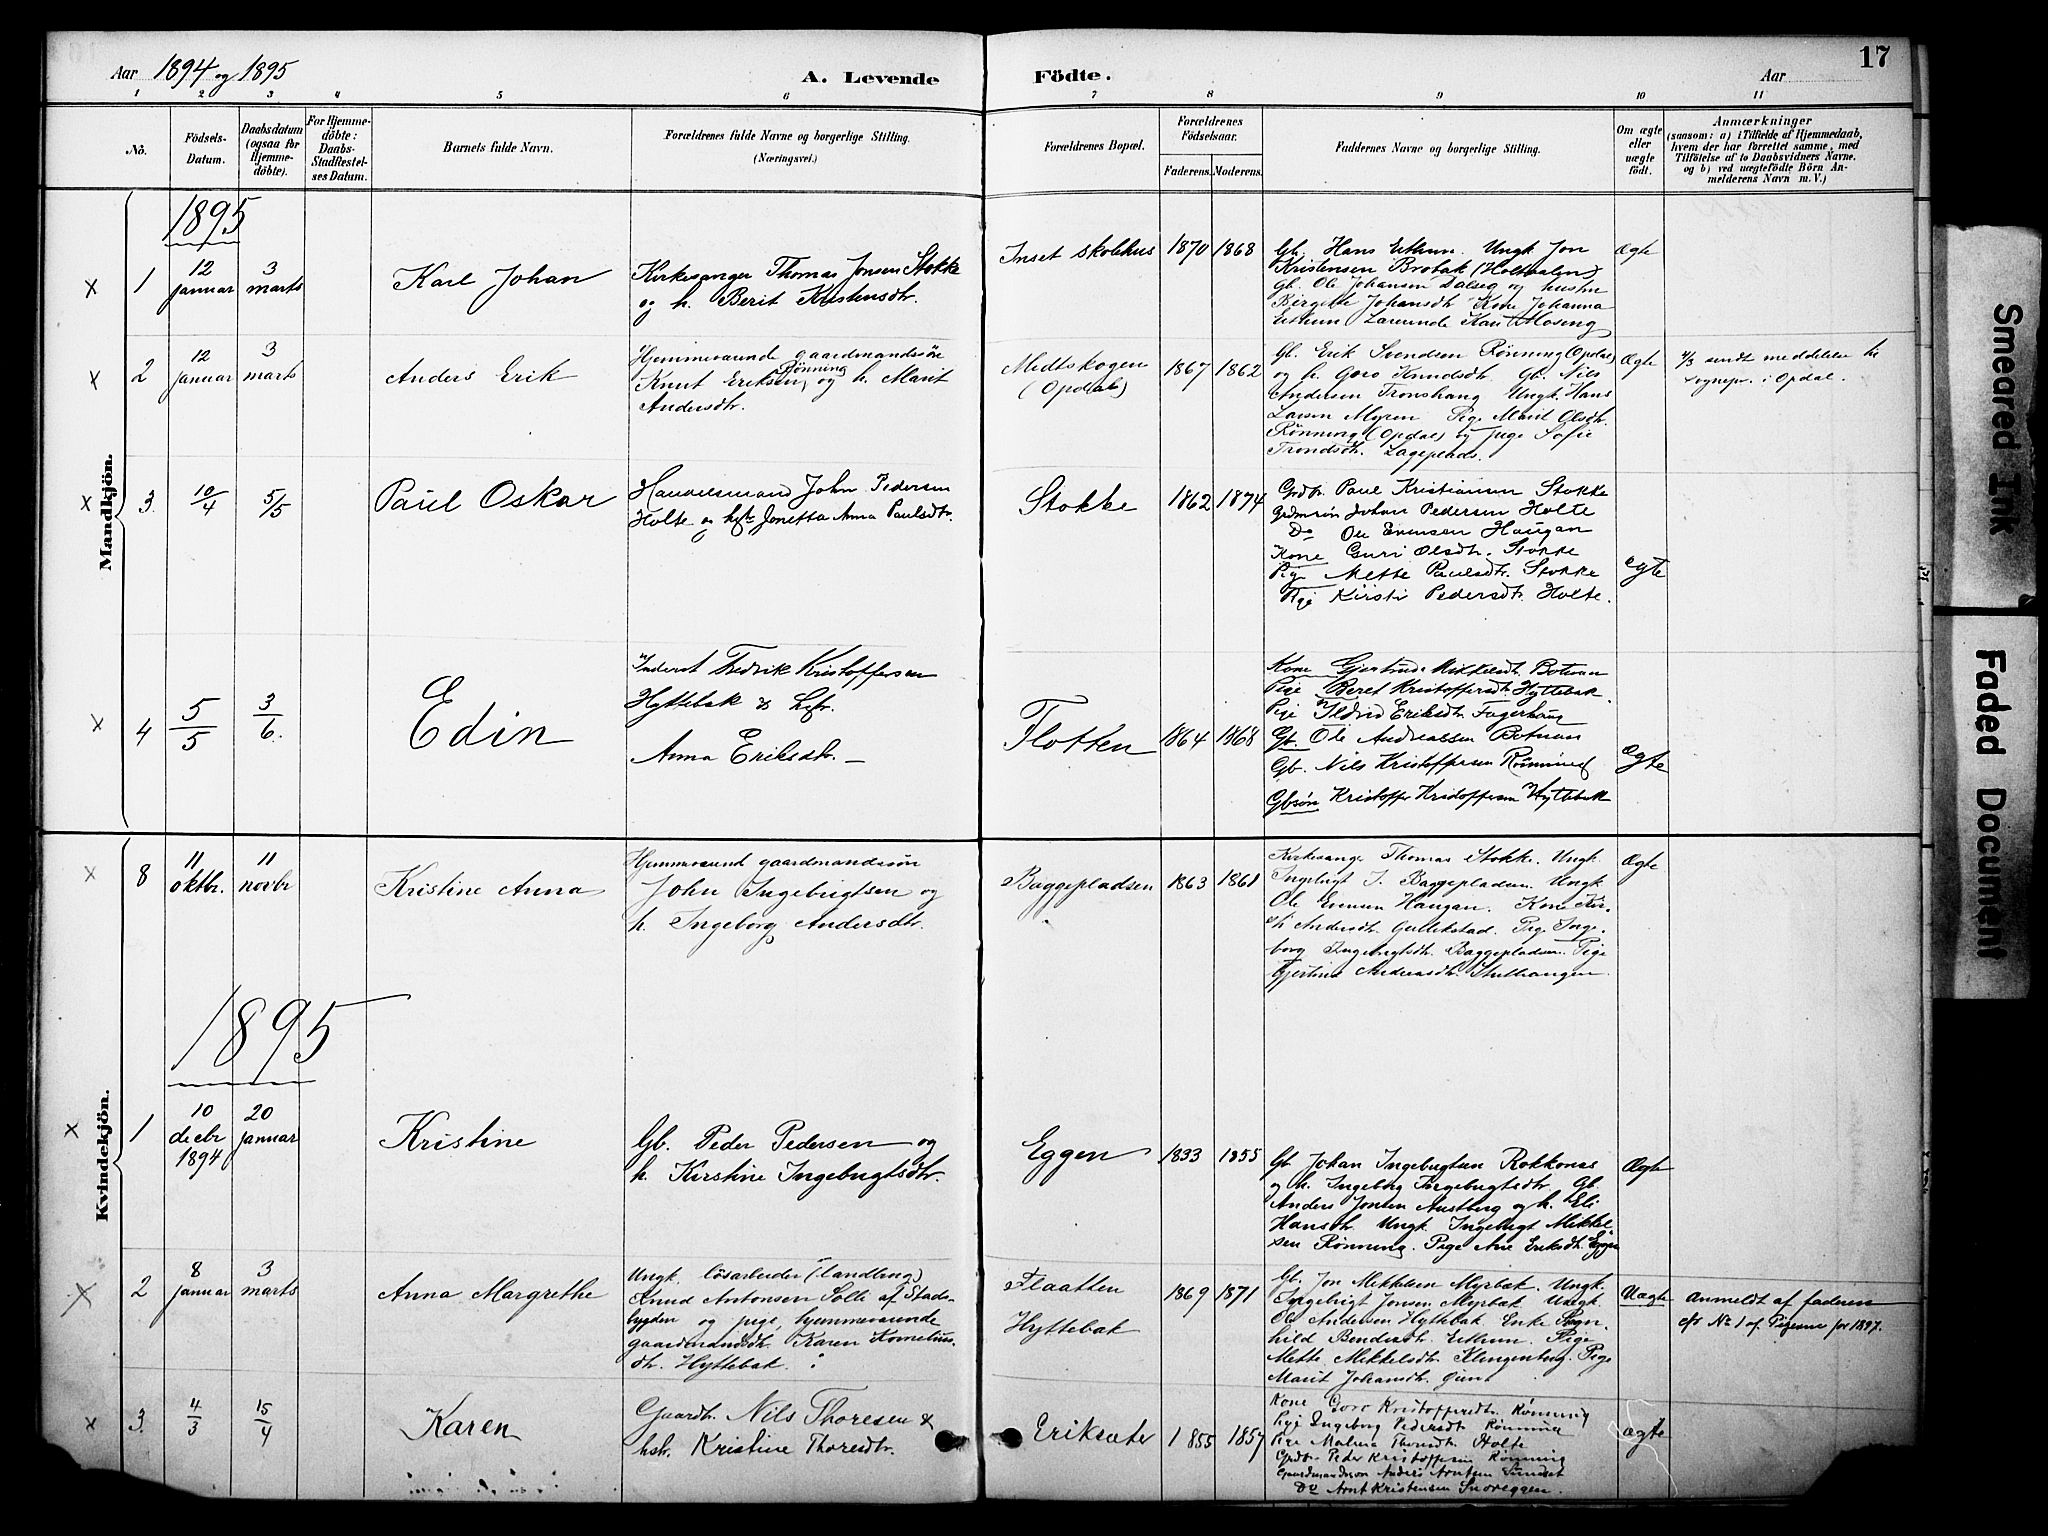 Aar 1894 og 1895
A. Levende Födte.
Aar
17
1 2 3 4 5 6 7 8 9 10 11
No.
Födsels-Datum.
Daabsdatum (ogsaa for Hjemme-döbte).
For Hjemme-döbte: Daabs-Stadfæstel-ses Datum.
Barnets fulde Navn.
Forældrenes fulde Navne og borgerlige Stilling.
(Næringsvei.)
Forældrenes Bopæl.
Forældrenes Födselsaar.
Faderens. Moderens.
Faddernes Navne og borgerlige Stilling.
Om ægte eller uægte födt.
Anmærkninger
(saasom: a) i Tilfælde af Hjemmedaab,
hvem der har forrettet samme, med
Tilföielse af to Daabsvidners Navne.
og b) ved uægtefödte Börn An-
melderens Navn m. V.)
Mandkjön.
1895
× 1
12 januar
3 marts
Karl Johan
Kirkesanger Thomas Jonsen Stokke
og h. Berit Kristensdtr.
Inset skolehus
1870 1868
Gb. Hans Ethun. Ungk. Jon
Kristensen Brobak (Holtaalen)
Gb. Ole Johansen Dalseg og hustru
Birgitte Johansdtr Kone Johanna
Ethun Lærerinde Kari Moseng
Ægte
× 2
12 januar
3 marts
Anders Erik
Hjemmeværende gaardmandssön
Knut Eriksen Rönning og h. Marit
Andersdtr.
Midtskogen
(Opdal)
1867 1862
Gb. Erik Svendsen Rönning (Opdal)
og h. Goro Knudsdtr. Gb. Nils
Andersen Tronshaug Ungk. Hans
Larsen Myren Pige Marit Olsdtr.
Rönning (Opdal) og pige Sofie
Trondsdtr.
Ægte
sendt meddelelse til
sognepr. i Opdal.
× 3.
10/4
5/5
Paul Oskar
Handelsmand John Pedersen
Holte og hst Jonetta Anna Paulsdtr.
Stokke
1862 1874
Grdbr. Paul Kristiansen Stokke
Grdmsön Johan Pedersen Holte
Do Ole Evensen Haugan
Kone Guri Olsdtr. Stokke
Pige Mette Paulsdtr. Stokke
Pige Kirsti Pedersdtr. Holte.
egte
× 4
5/5
3/6.
Edin
Inderst Fredrik Kristoffersen
Hyttebak &
Anna Eriksdtr. —
Flotten
1864 1868
Kone Gjertrud Mikkelsdt. Botnan
Pige Beret Kristoffersdt. Hyttebak
Pige Ildrid Eriksdtr. Fagerhaug
Gb. Ole Andreassen Botnan
Gb. Nils Kristoffersen Rönning
Gbsön Kristoffer Kristoffersen Hyttebak
egte
Kvindekjön.
× 8
11 oktbr.
11 novbr
Kristine Anna
Hjemmeværend gaardmandssön
John Ingebrigtsen og
h. Ingeborg Andersdtr.
Baggepladsen
1863 1861
Kirkesanger Thomas Stokke. Ungk.
Ingebrigt J. Baggepladsen. Ungk
Ole Evensen Haugan. Kone Kir-
sti Andersdtr. Gullikstad. Pige Inge-
borg Ingebrigtsdtr. Baggepladsen. Pige
Gjertine Andersdtr.
Ægte
1895
× 1
10 decbr 1894
20 januar
Kristine
Gb. Peder Pedersen og
h. Kirstine Ingebrigtsdtr.
Eggen
1833 1855
Gb. Johan Ingebrigtsen Rokkones
og h. Ingeborg Ingebrigtsdtr. Gb.
Anders Jonsen Austberg og h. Eli
Hansdtr. Ungk. Ingebrigt Mikkel-
sen Rönning. Pige Ane Eriksdtr. Eggen
Ægte
× 2
8 januar
3 marts
Anna Margrethe
Ungk. lösarbeider (landbrug)
Knud Antonsen Solli af Stads-
bygden og pige, hjemmeværende
gaardmandsdtr. Karen Kornelius-
dtr. Hyttebak.
Flaatten
Hyttebak
1869 1871
Gb. Jon Mikkelsen Myrbak. Ungk.
Ingebrigt Jonsen Myrbak Ungk.
Ole Andersen Hyttebak. Enke Ragn-
hild Bendixsdtr. Ethun. Pige
Mette Mikkelsdtr. Klingenberg. Pige
Marit Johansdtr.
Uægte
Anmeldt af faderen
cfr No 1 af Pigerne for 1897.
× 3.
4/3
15/4
Karen
Gaardbr. Nils Thoresen &
hstr. Kristine Thoresdtr.
Eriksæter
1855 1857
Kone Goro Kristoffersdtr. Rönning
Pige Ingeborg Pedersdt Rönning
Pige Thorsdtr. Holte
Grdbr Peder Kristoffersen Rönning
Gaardmandssön Anders Arntsen Sundset
Do Arnt Kristensen Snoreggen.
ægte
Smeared Ink
Faded Document